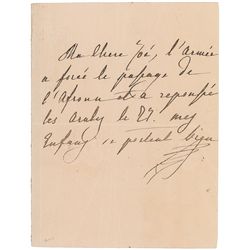 Ma chere Zoé, l'armée
a forcé le passage de
l'Afroun et a repoussé
les arabes le 27. mes
Enfans se portent bien